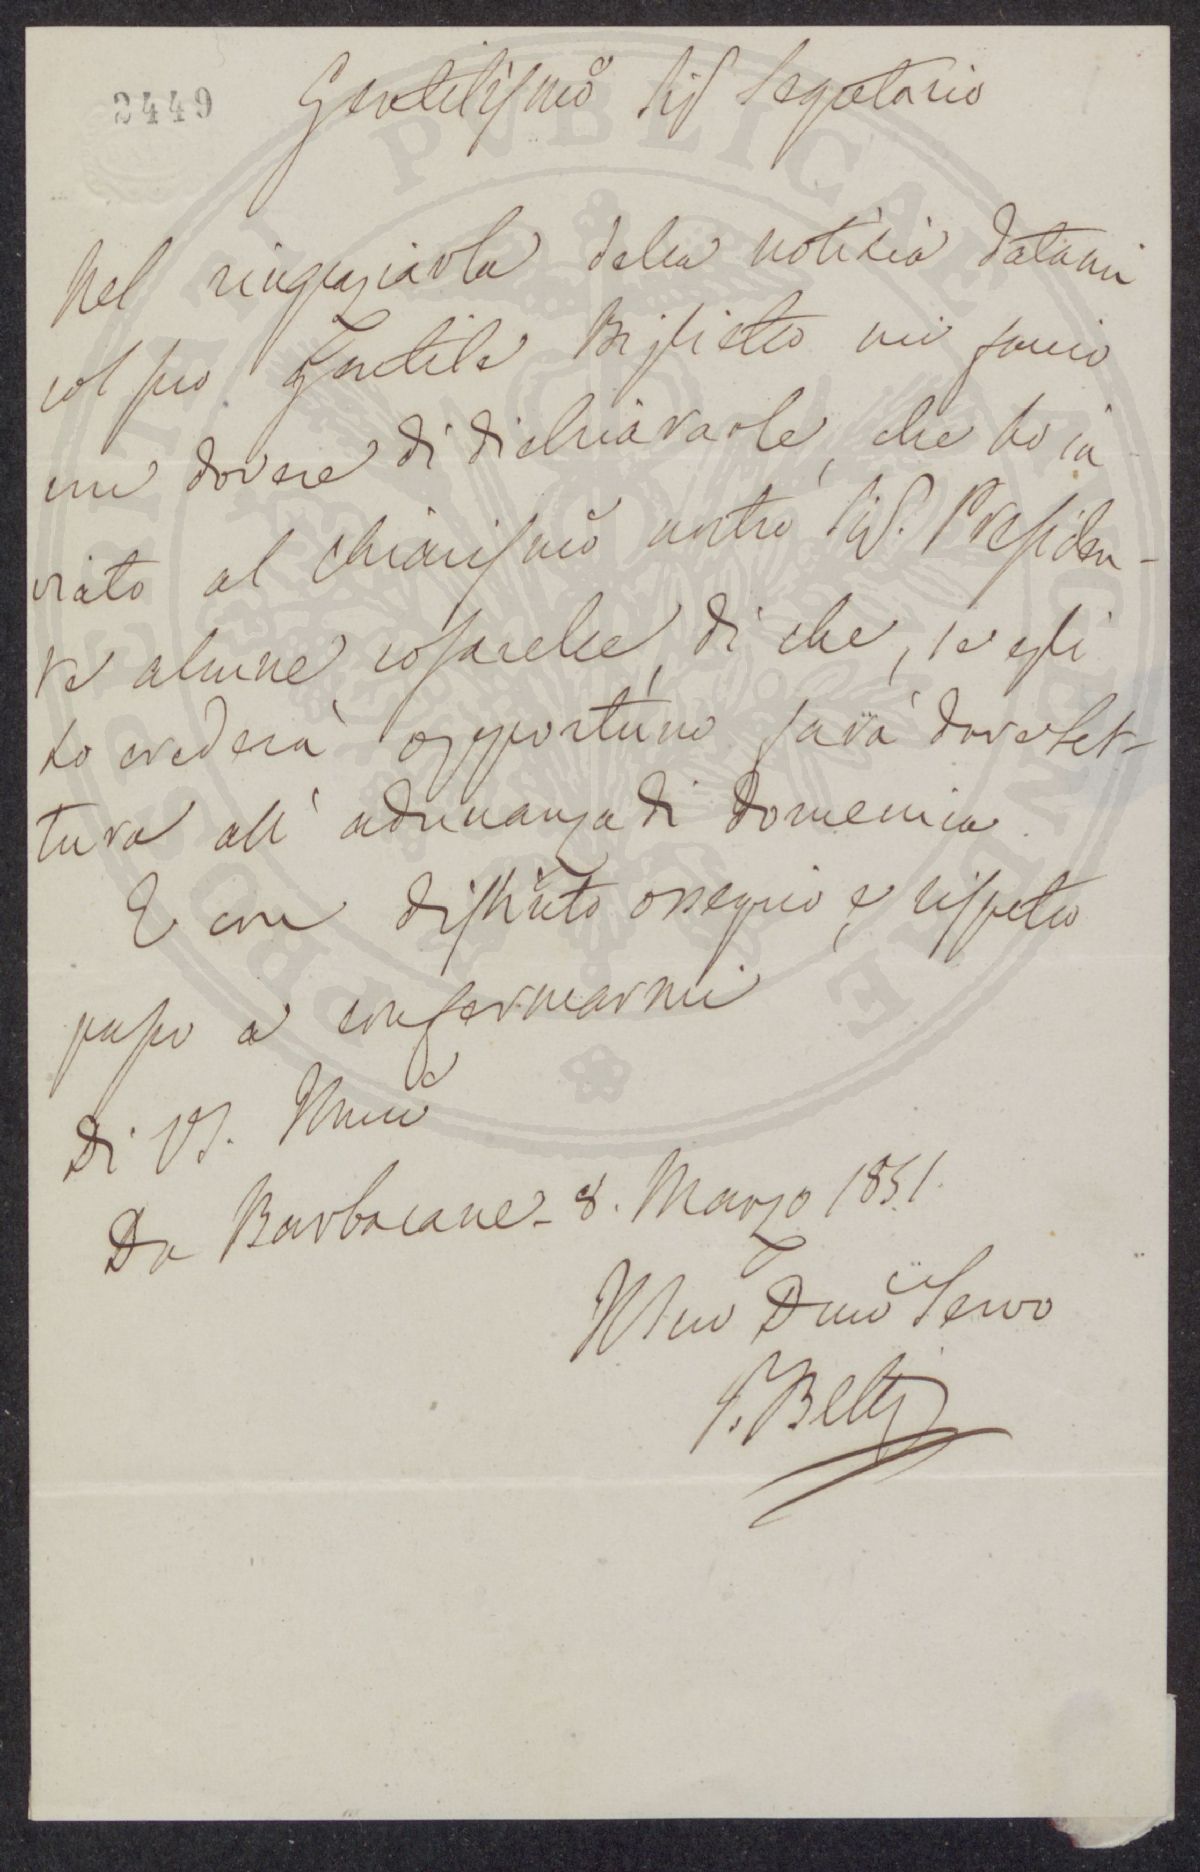 2449
Gentilissmo Sigr Segretario
Nel ringraziarla della notizia datami
col suo gentile Biglietto mi faccio
un dovere di dichiararle, che ho in
viato al chiarissmo nostro Sigr. Presiden-
te alcune cosarelle, di che, se egli
lo crederà opportuno farà dare let-
tura all' adunanza di Domenica.
E con distinto ossequio, e rispetto
passo a confermarmi
Di VS. Illma
Da Barbacane - 8. Marzo 1851.
Dmo Servo
Betti